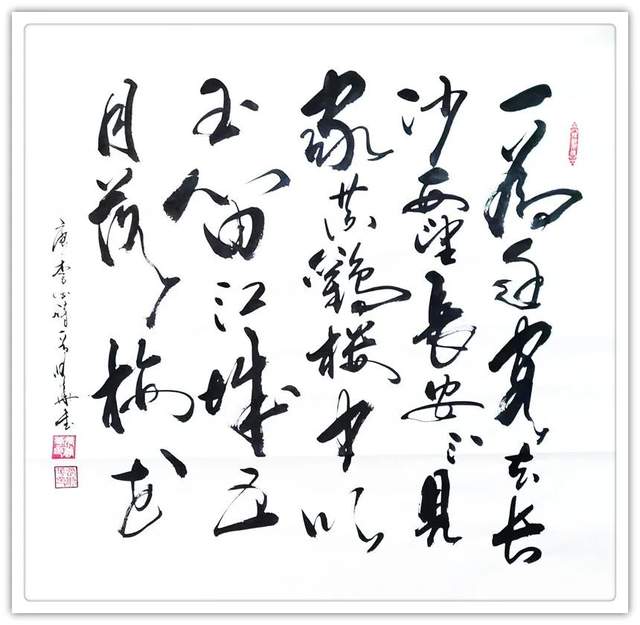 一為迁客去长
沙西望長安不見
家黄鶴楼中吹
玉笛江城五
月落梅花
唐李白詩一首